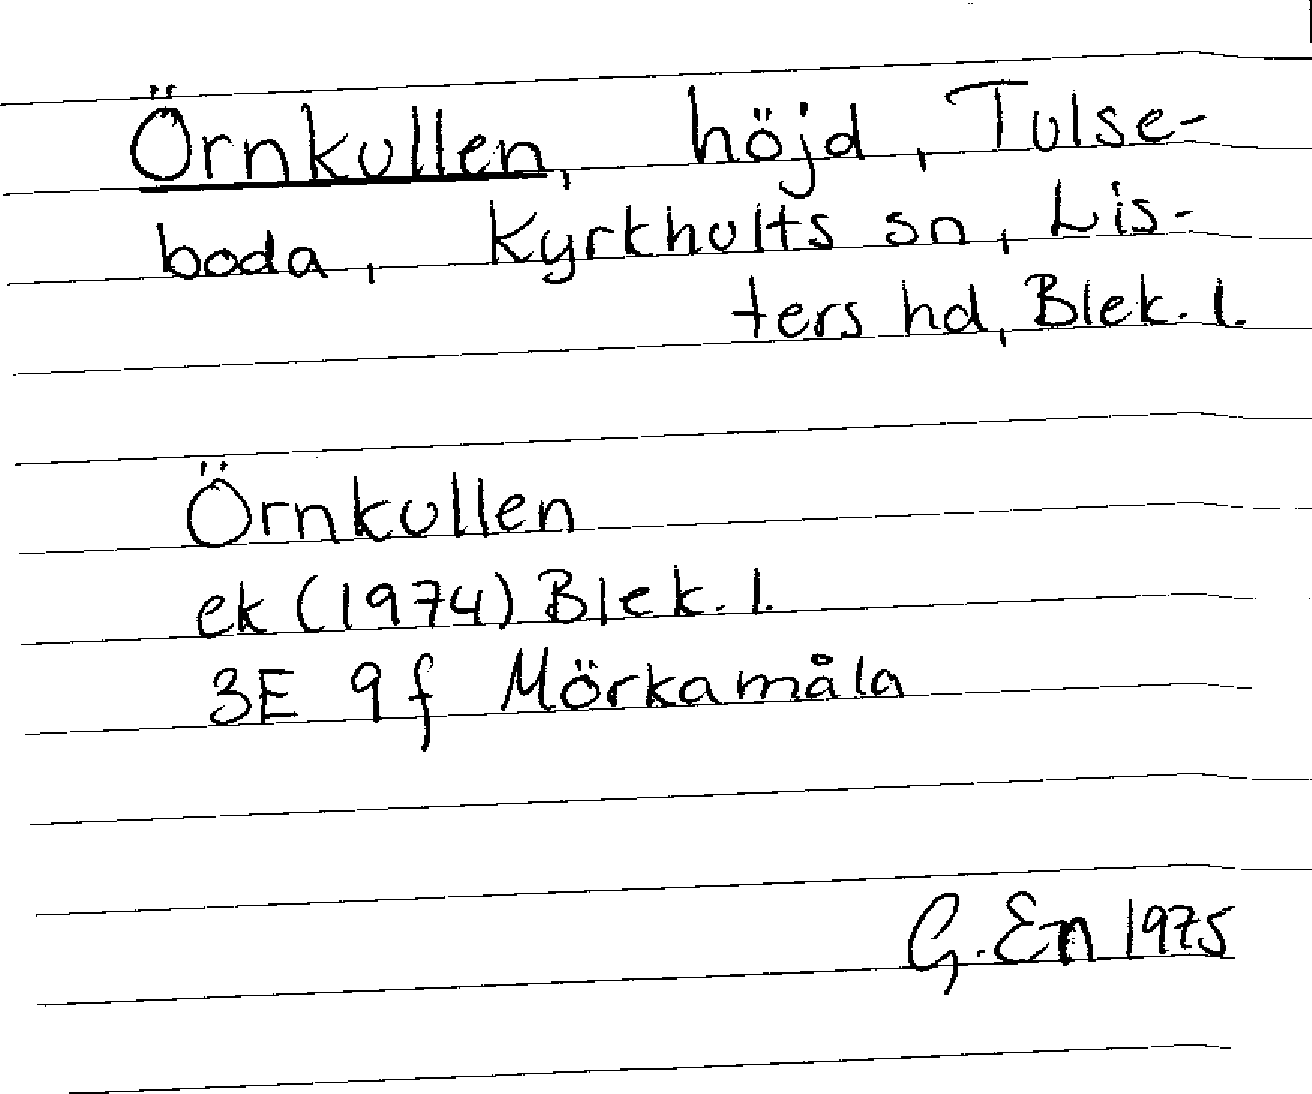 Örnkullen, höjd, Tulse-
boda, Kyrkhults sn, Lis-
ters hd, Blek. l.
Örnkullen
ek (1974) Blek. l.
3E 9f Mörkamåla
G. En 1975